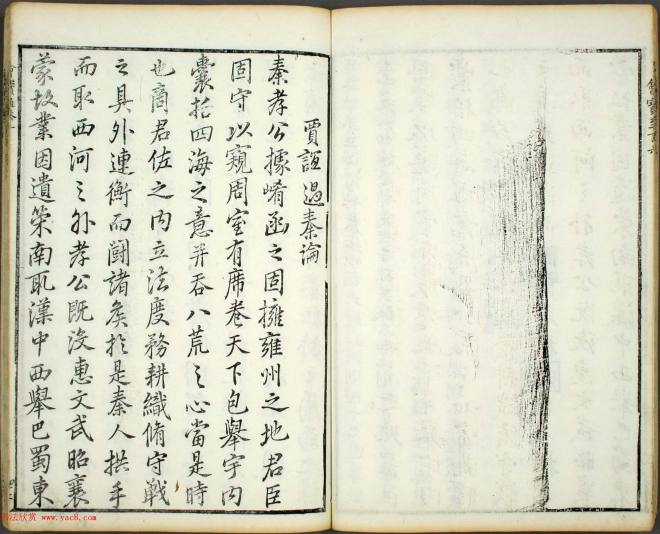 賈誼過秦論
秦孝公據崤函之固擁雍州之地君臣
固守以窺周室有席卷天下包舉宇内
囊括四海之意并吞八荒之心當是時
也商君佐之内立法度務耕織脩守戰
之具外連衡而鬪諸矦於是秦人拱手
而取西河之外孝公既没惠文武昭襄
蒙故業因遺策南取漢中西舉巴蜀東
法欣赏 www.yac8.com